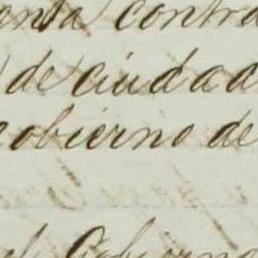 enta contra
de ciudad
Gobierno de
de Gobierno